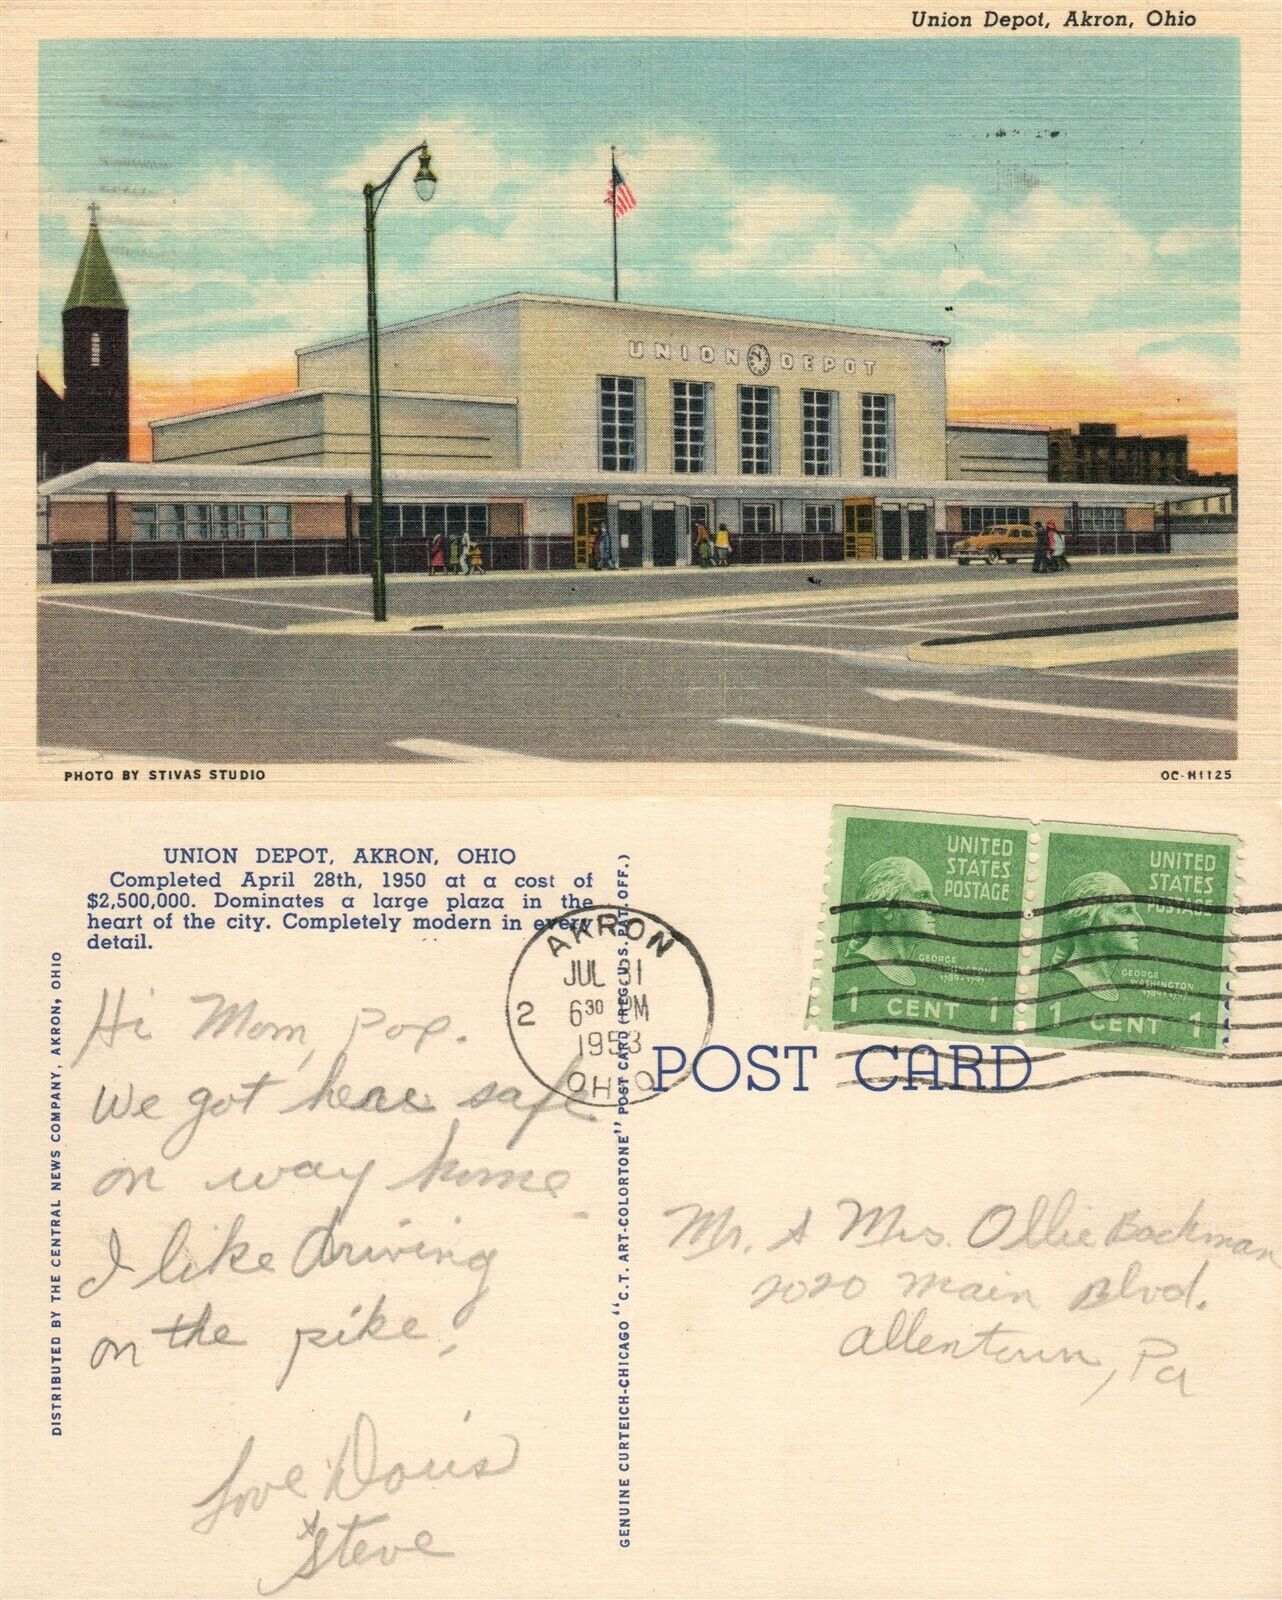 Union Depot, Akron, Ohio
UNION DEPOT
PHOTO BY STIVAS STUDIO
OC-H1125
UNION DEPOT, AKRON, OHIO
Completed April 28th, 1950 at a cost of
$2,500,000. Dominates a large plaza in the
heart of the city. Completely modern in every
detail.
DISTRIBUTED BY THE CENTRAL NEWS COMPANY, AKRON, OHIO
Hi Mom, Pop.
We got here safe
on way home.
I like driving
on the pike.
Love Doris
& Steve
GENUINE CURTEICH-CHICAGO "C.T. ART-COLORTONE" POST CARD (REG. U.S. PAT. OFF.)
AKRON
JUL 31
2 6 30 PM
1953
OHIO
UNITED
STATES
POSTAGE
GEORGE
WASHINGTON
1 CENT 1
UNITED
STATES
POSTAGE
GEORGE
WASHINGTON
1 CENT 1
POST CARD
Mr. & Mrs. Ollie Bachman
2020 Main Blvd.
Allentown, Pa